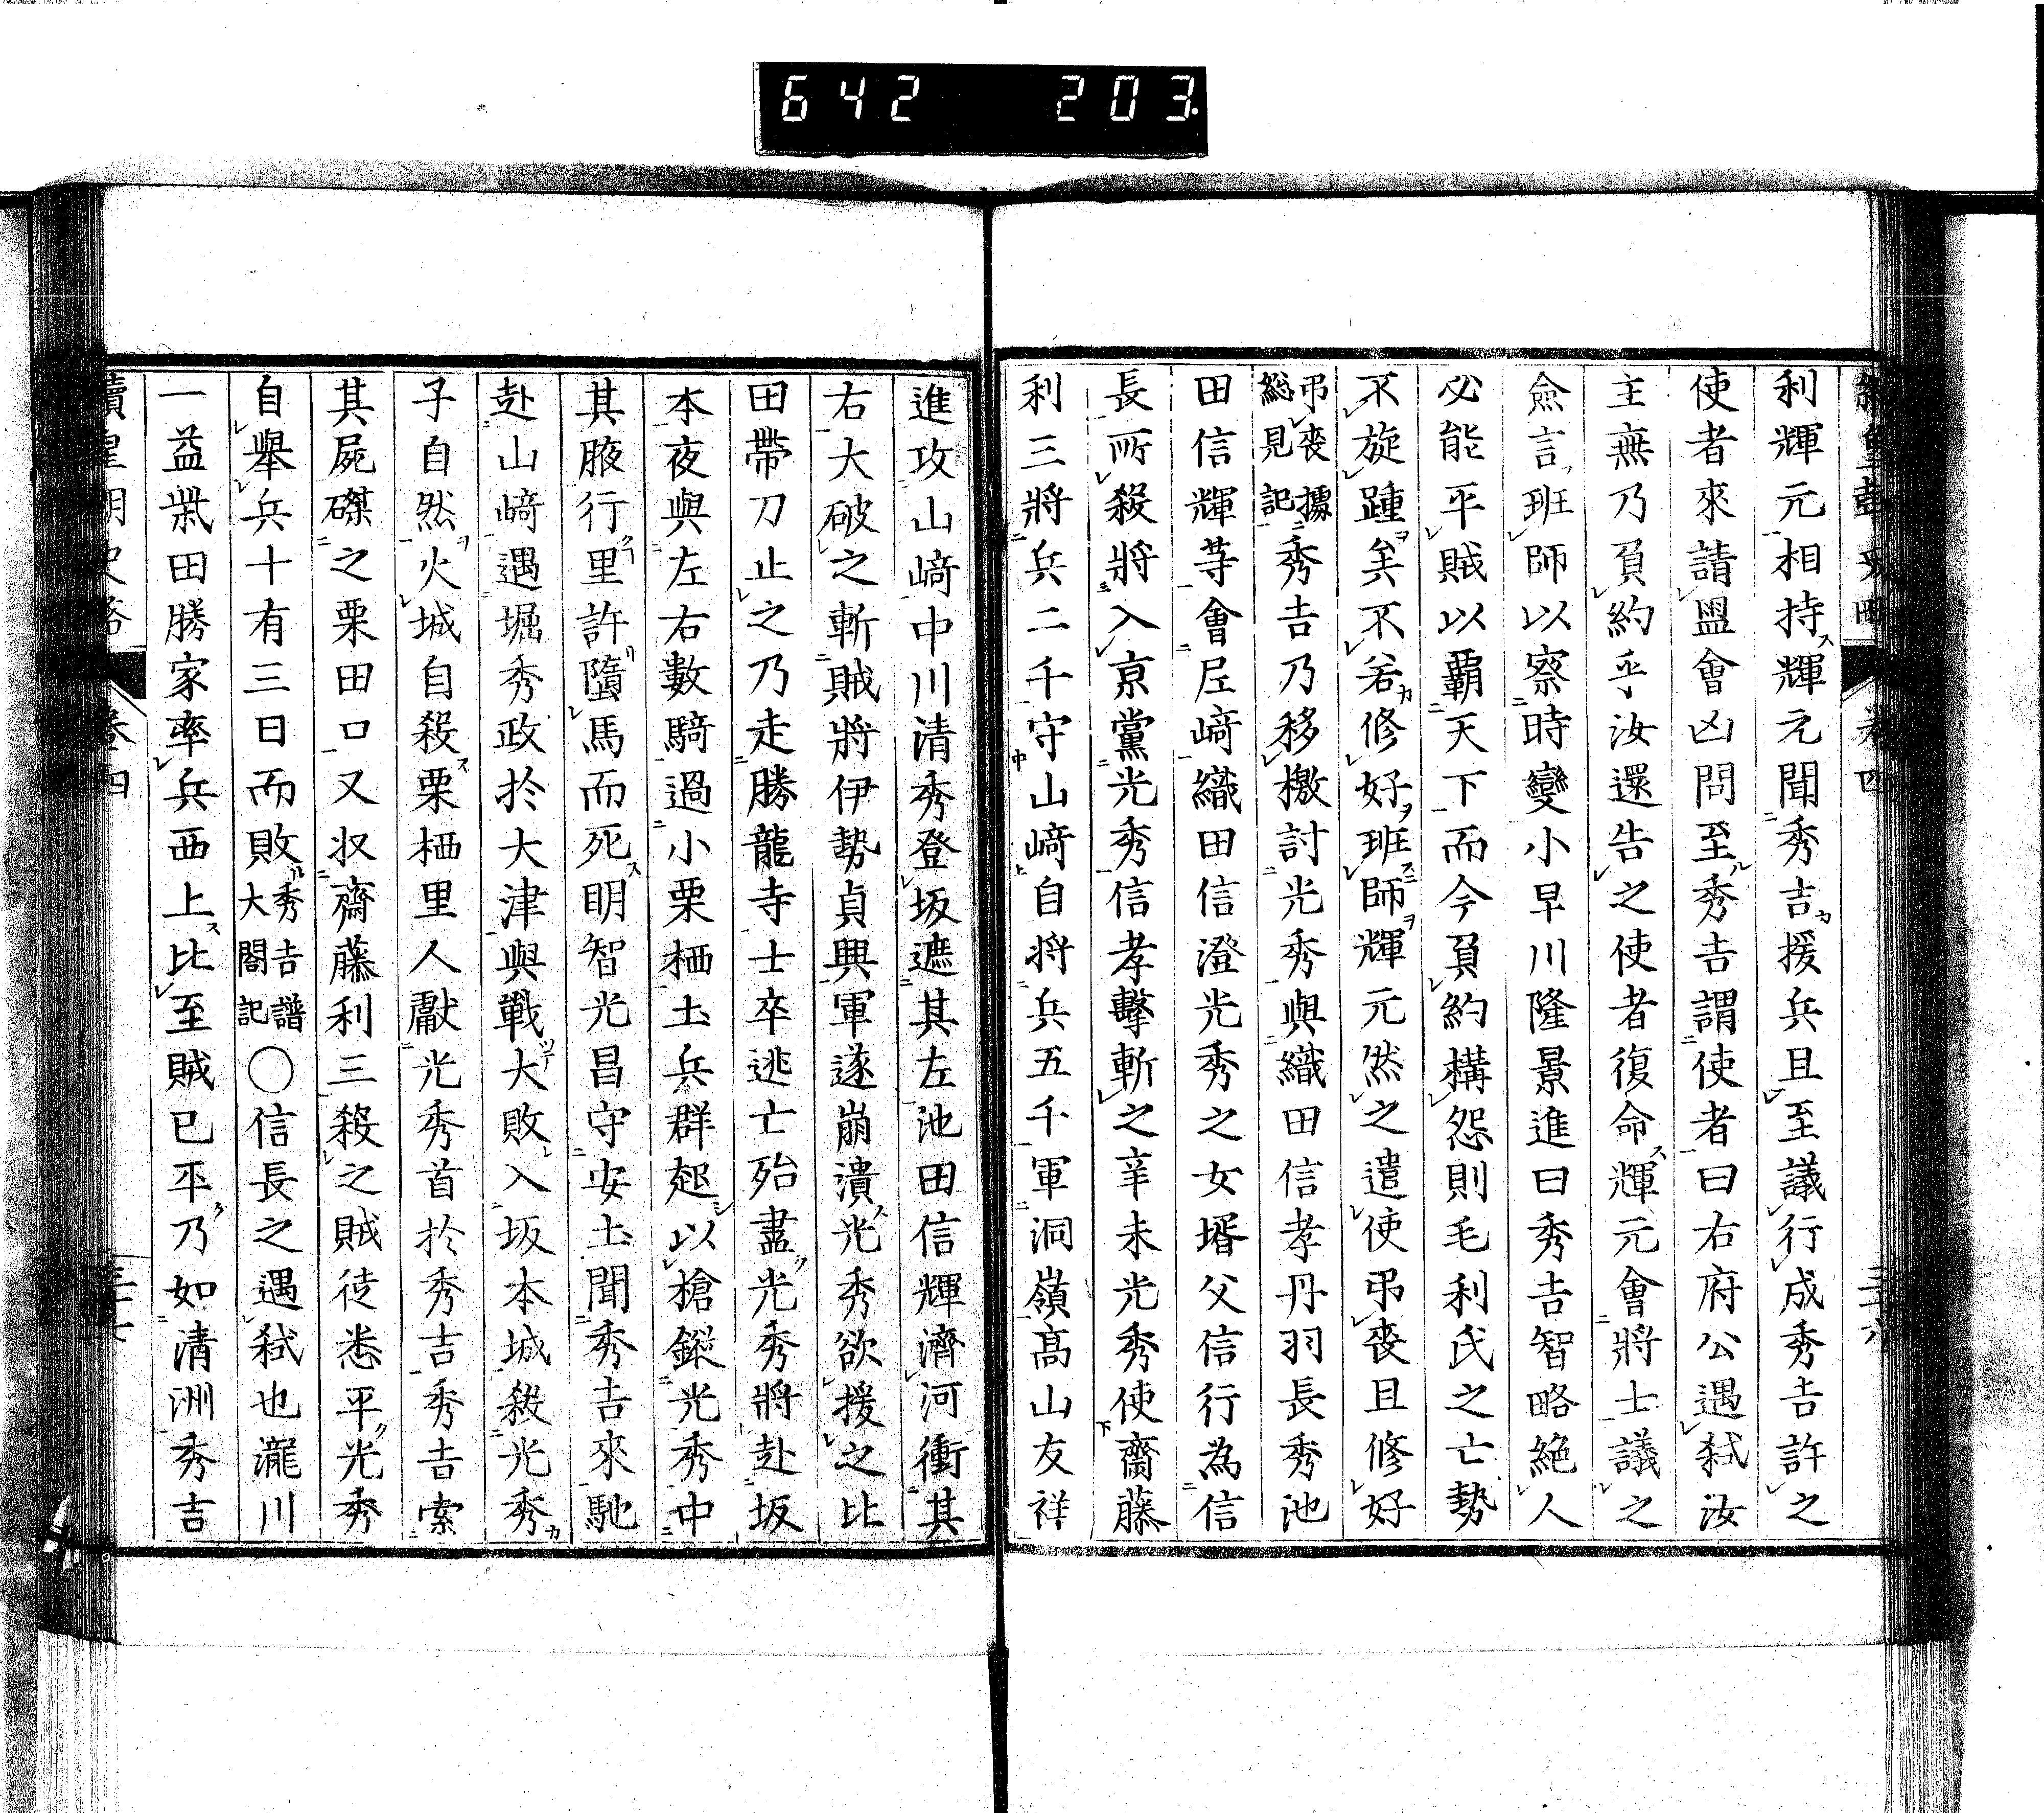 642 203.
利輝元相持輝元聞秀吉援兵且至議行成秀吉許之
使者來請盟會凶問至秀吉謂使者曰右府公遇弑汝
主無乃負約乎汝還告之使者復命輝元會將士議之
僉言班師以察時變小早川隆景進曰秀吉智略絶人
必能平賊以覇天下而今負約構怨則毛利氏之亡勢
不旋踵矣不若修好班師輝元然之遣使弔喪且修好
弔喪據
総見記
秀吉乃移檄討光秀與織田信孝丹羽長秀池
田信輝等會尼﨑織田信澄光秀之女壻父信行為信
長所殺將入京黨光秀信孝擊斬之辛未光秀使齋藤
利三將兵二千守山﨑自將兵五千軍洞嶺髙山友祥
進攻山﨑中川清秀登坂遮其左池田信輝濟河衝其
右大破之斬賊將伊勢貞興軍遂崩潰光秀欲援之比
田帶刀止之乃走勝龍寺士卒逃亡殆盡光秀將赴坂
本夜與左右數騎過小栗栖土兵群起以槍鏦光秀中
其腋行里許墮馬而死明智光昌守安土聞秀吉來馳
赴山﨑遇堀秀政於大津與戰大敗入坂本城殺光秀
子自然火城自殺栗栖里人獻光秀首於秀吉秀吉索
其屍磔之栗田口又収齋藤利三殺之賊徒悉平光秀
自舉兵十有三日而敗
秀吉譜
大閤記
○信長之遇弑也瀧川
一益柴田勝家率兵西上比至賊已平乃如清洲秀吉
卷四